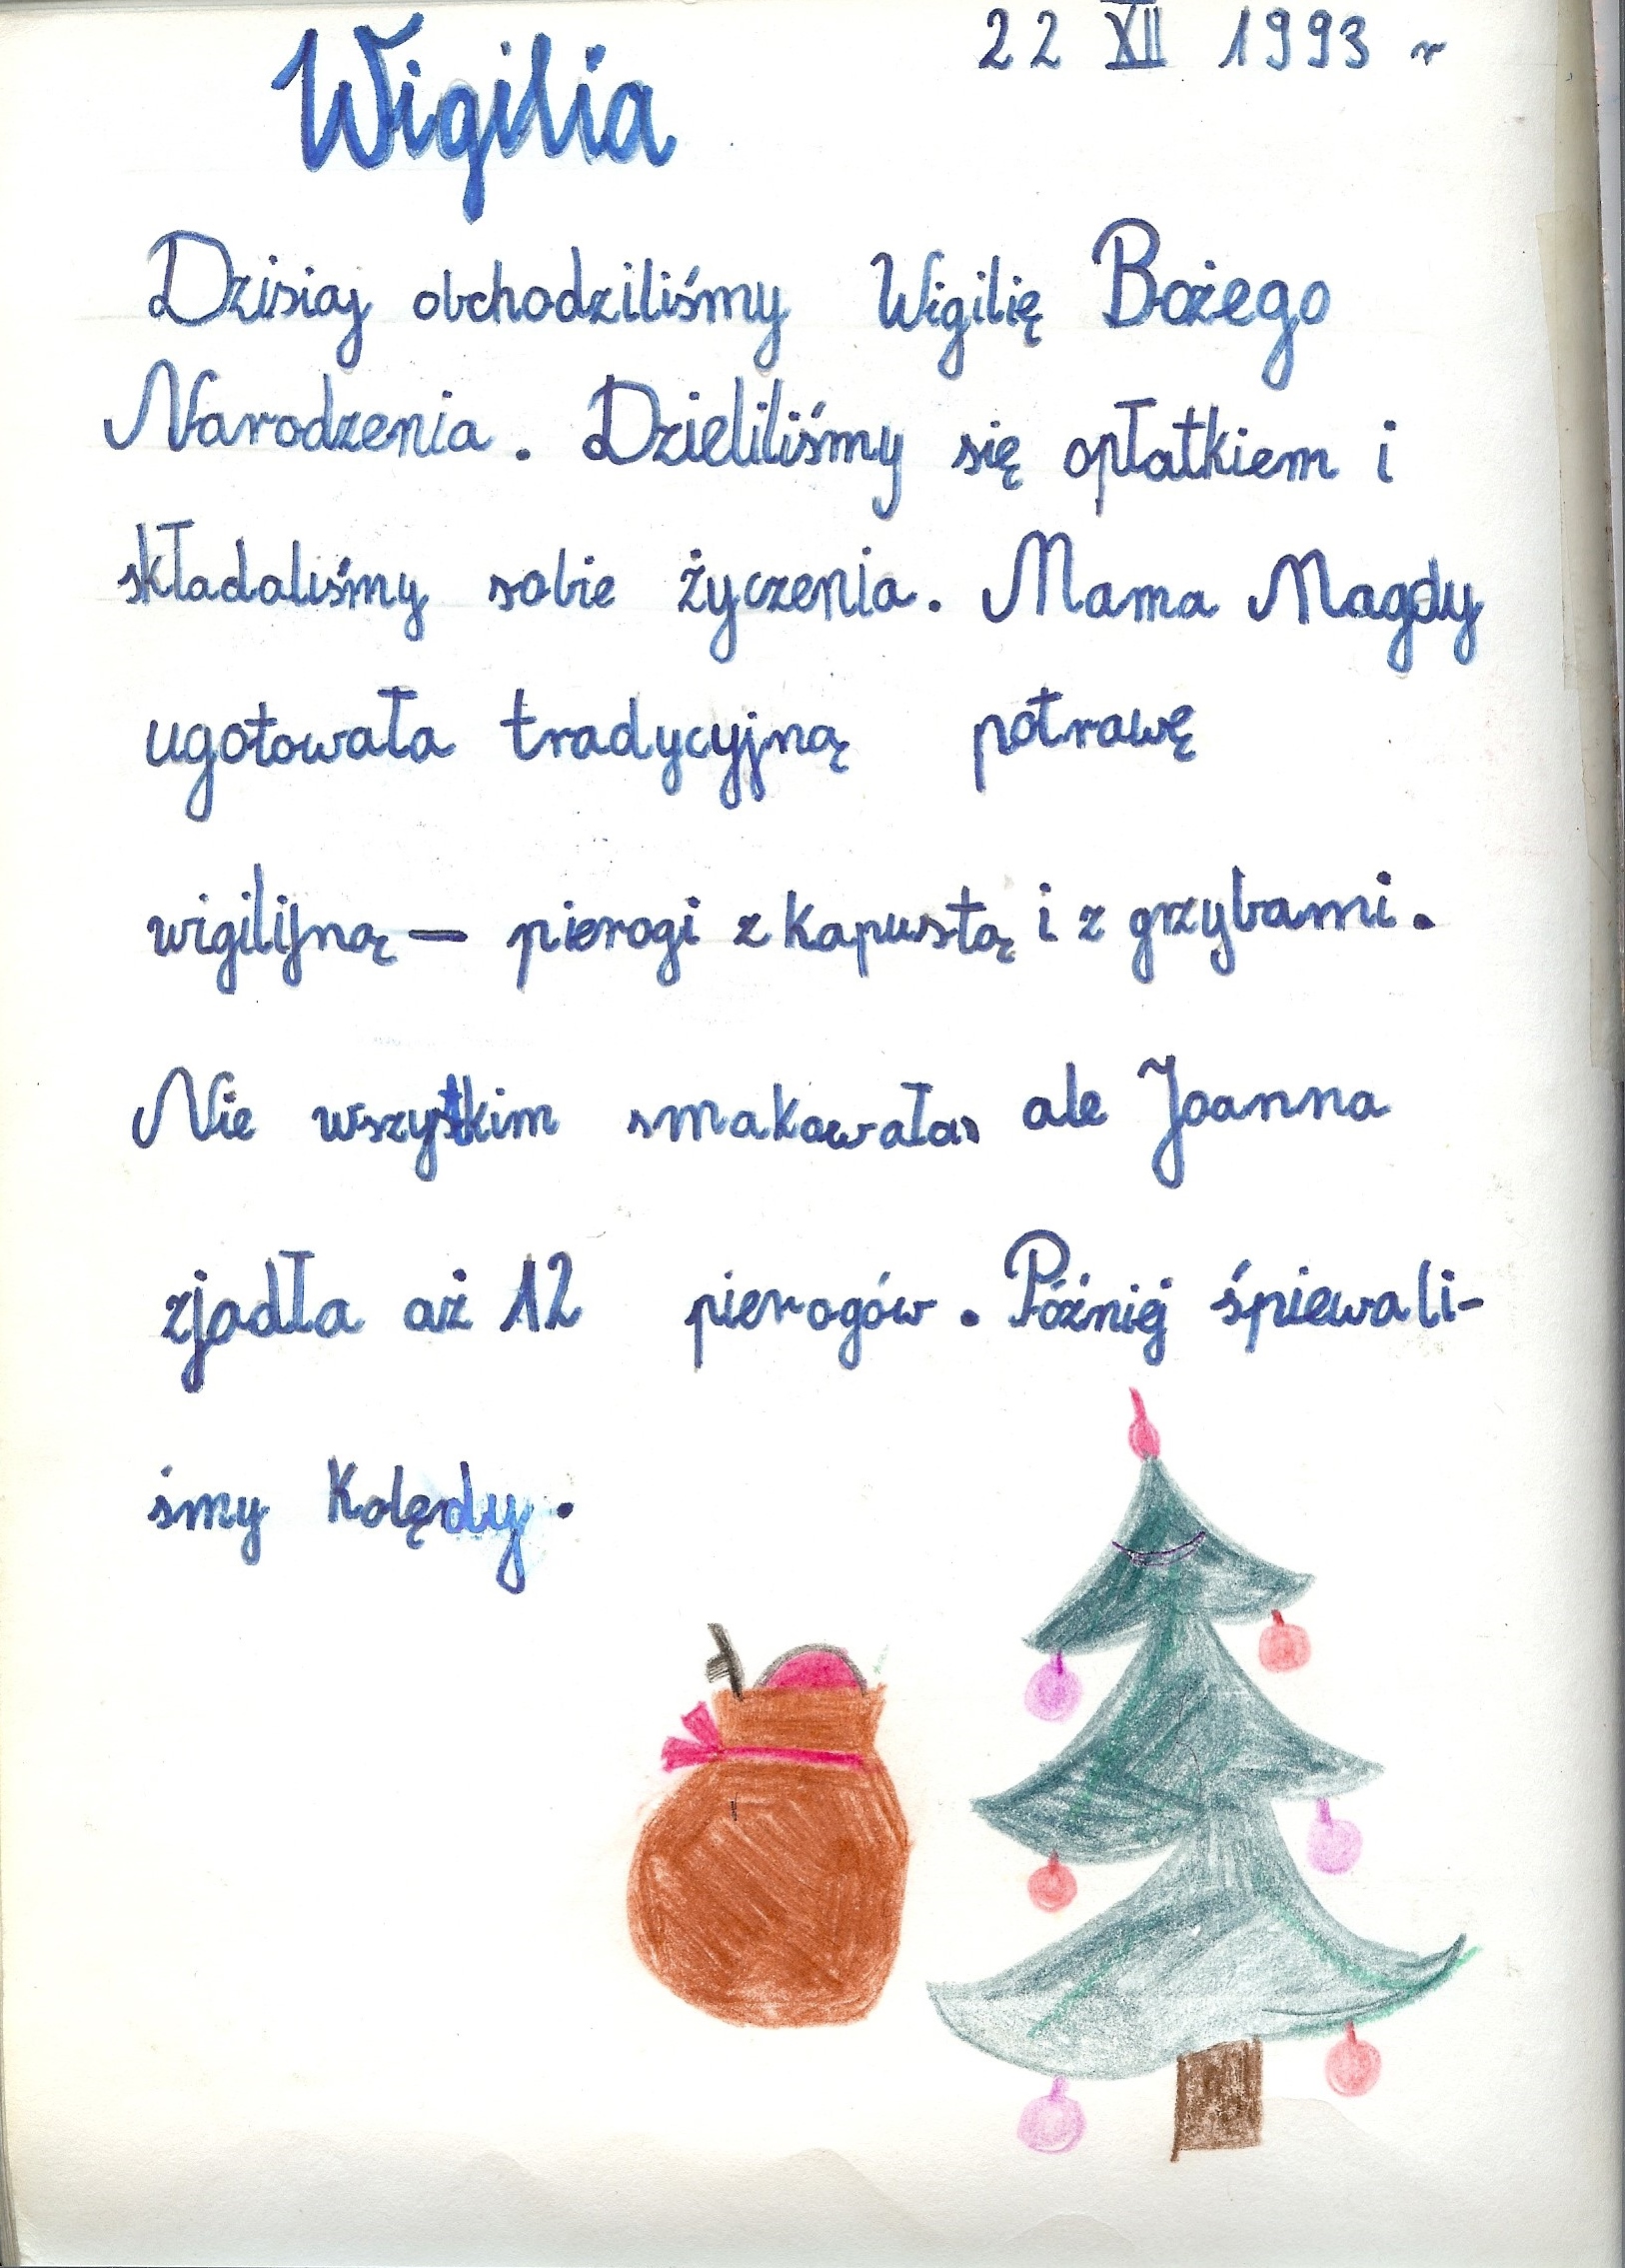 22 XII 1993 r
Wigilia
Dzisiaj obchodziliśmy Wigilię Bożego
Narodzenia. Dzieliliśmy się opłatkiem i
składaliśmy sobie życzenia. Mama Magdy
ugotowała tradycyjną potrawę
wigilijną — pierogi z kapustą i z grzybami.
Nie wszystkim smakowała, ale Joanna
zjadła aż 12 pierogów. Później śpiewali-
śmy Kolędy.